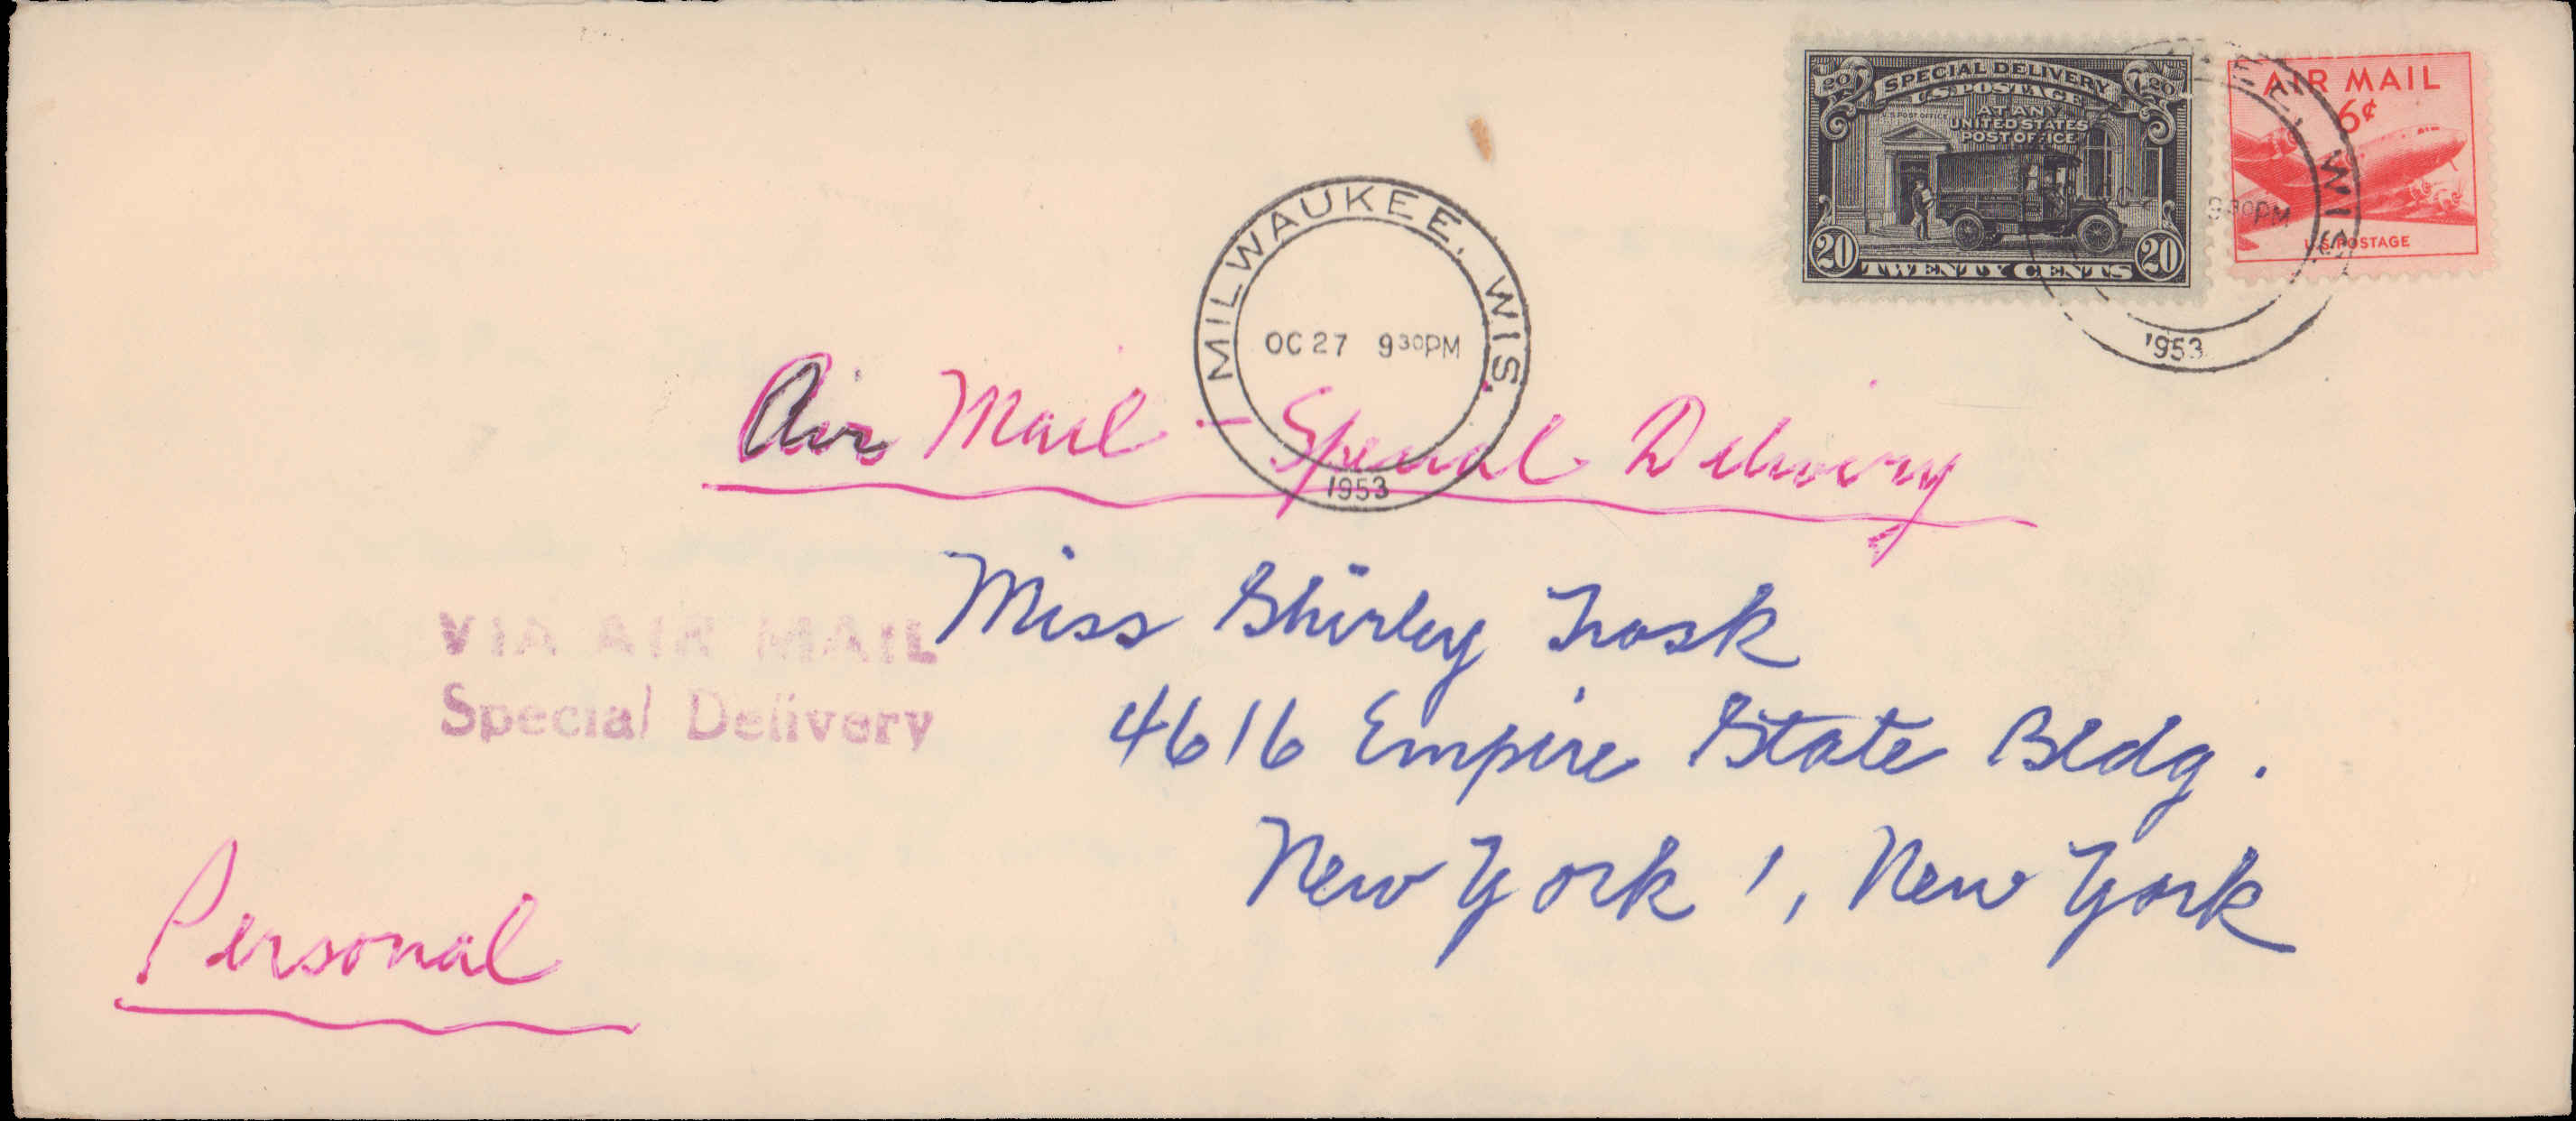 SPECIAL DELIVERY
U.S. POSTAGE
AT ANY
UNITED STATES
POST OFFICE
U.S. POST OFFICE
20 20
20 TWENTY CENTS 20
AIR MAIL
6¢
U.S. POSTAGE
WIS.
OC 930PM
1953
MILWAUKEE, WIS.
OC 27 930PM
1953
Air Mail - Special Delivery
VIA AIR MAIL
Special Delivery
Miss Shirley Trask
4616 Empire State Bldg.
New York 1, New York
Personal